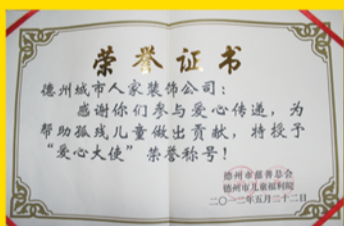 荣誉证书
德州城市人家装饰公司：
感谢你们参与爱心传递，为
帮助孤残儿童做出贡献，特授予
“爱心大使”荣誉称号！
德州市慈善总会
德州市儿童福利院
二〇一二年五月二十二日